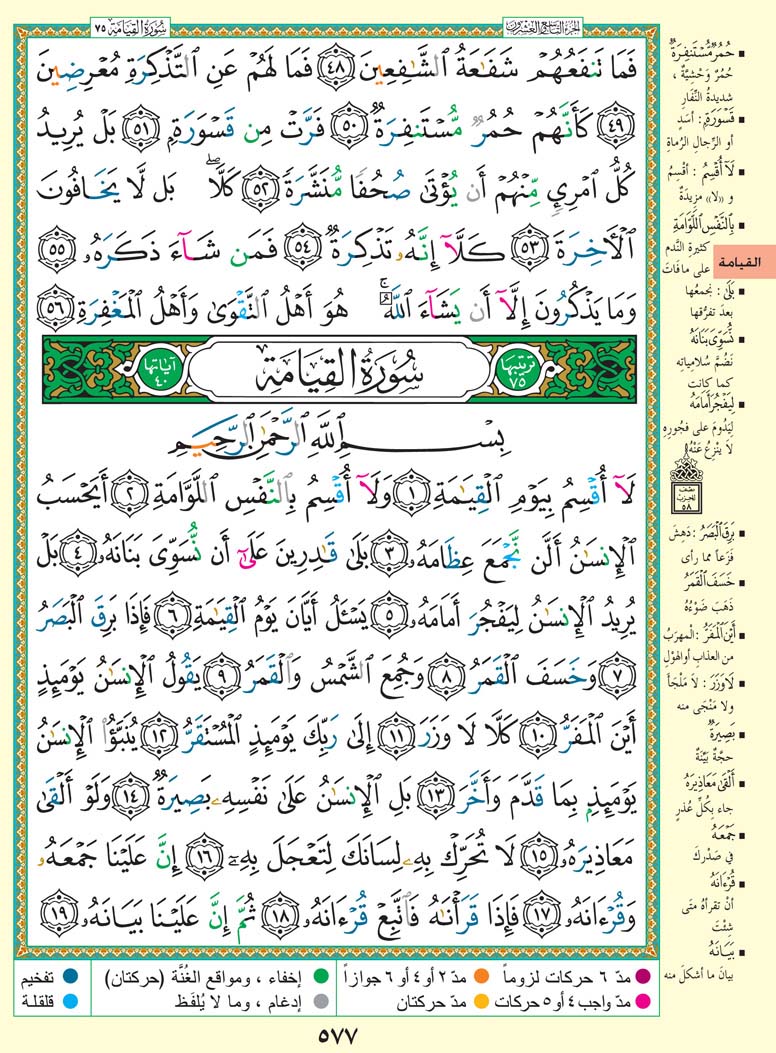 الجزء التاسع والعشرون
سُورَةُ القِيَامَة ٧٥
فَمَا تَنفَعُهُمْ شَفَٰعَةُ ٱلشَّٰفِعِينَ ٤٨ فَمَا لَهُمْ عَنِ ٱلتَّذْكِرَةِ مُعْرِضِينَ
٤٩ كَأَنَّهُمْ حُمُرٌ مُّسْتَنفِرَةٌ ٥٠ فَرَّتْ مِن قَسْوَرَةٍۭ ٥١ بَلْ يُرِيدُ
كُلُّ ٱمْرِئٍ مِّنْهُمْ أَن يُؤْتَىٰ صُحُفًا مُّنَشَّرَةً ٥٢ كَلَّا ۖ بَل لَّا يَخَافُونَ
ٱلْأَخِرَةَ ٥٣ كَلَّآ إِنَّهُۥ تَذْكِرَةٌ ٥٤ فَمَن شَآءَ ذَكَرَهُۥ ٥٥
وَمَا يَذْكُرُونَ إِلَّآ أَن يَشَآءَ ٱللَّهُ ۚ هُوَ أَهْلُ ٱلتَّقْوَىٰ وَأَهْلُ ٱلْمَغْفِرَةِ ٥٦
ترتيبها ٧٥
سُورَةُ القِيَامَة
آياتها ٤٠
بِسْمِ ٱللَّهِ ٱلرَّحْمَٰنِ ٱلرَّحِيمِ
لَآ أُقْسِمُ بِيَوْمِ ٱلْقِيَٰمَةِ ١ وَلَآ أُقْسِمُ بِٱلنَّفْسِ ٱللَّوَّامَةِ ٢ أَيَحْسَبُ
ٱلْإِنسَٰنُ أَلَّن نَّجْمَعَ عِظَامَهُۥ ٣ بَلَىٰ قَٰدِرِينَ عَلَىٰٓ أَن نُّسَوِّىَ بَنَانَهُۥ ٤ بَلْ
يُرِيدُ ٱلْإِنسَٰنُ لِيَفْجُرَ أَمَامَهُۥ ٥ يَسْـَٔلُ أَيَّانَ يَوْمُ ٱلْقِيَٰمَةِ ٦ فَإِذَا بَرِقَ ٱلْبَصَرُ
٧ وَخَسَفَ ٱلْقَمَرُ ٨ وَجُمِعَ ٱلشَّمْسُ وَٱلْقَمَرُ ٩ يَقُولُ ٱلْإِنسَٰنُ يَوْمَئِذٍ
أَيْنَ ٱلْمَفَرُّ ١٠ كَلَّا لَا وَزَرَ ١١ إِلَىٰ رَبِّكَ يَوْمَئِذٍ ٱلْمُسْتَقَرُّ ١٢ يُنَبَّؤُا۟ ٱلْإِنسَٰنُ
يَوْمَئِذٍۭ بِمَا قَدَّمَ وَأَخَّرَ ١٣ بَلِ ٱلْإِنسَٰنُ عَلَىٰ نَفْسِهِۦ بَصِيرَةٌ ١٤ وَلَوْ أَلْقَىٰ
مَعَاذِيرَهُۥ ١٥ لَا تُحَرِّكْ بِهِۦ لِسَانَكَ لِتَعْجَلَ بِهِۦٓ ١٦ إِنَّ عَلَيْنَا جَمْعَهُۥ
وَقُرْءَانَهُۥ ١٧ فَإِذَا قَرَأْنَٰهُ فَٱتَّبِعْ قُرْءَانَهُۥ ١٨ ثُمَّ إِنَّ عَلَيْنَا بَيَانَهُۥ ١٩
▪ حُمُرٌ مُّسْتَنفِرَةٌ
حُمُرٌ وَحْشِيَّةٌ،
شديدةُ النِّفَارِ
▪ قَسْوَرَةٍ: أسَدٍ
أو الرِّجالِ الرُّماةِ
▪ لَآ أُقْسِمُ: أقْسِمُ
و «لا» مزيدَةٌ
▪ بِٱلنَّفْسِ ٱللَّوَّامَةِ
كثيرةِ النَّدم
على ما فاتَ
القيامة
▪ بَلَىٰ: نجمعُها
بعدَ تفرُّقها
▪ نُّسَوِّىَ بَنَانَهُ
نَضُمَّ سُلامِياتِه
كما كانت
▪ لِيَفْجُرَ أَمَامَهُ
لِيَدُومَ على فجُورِهِ
لا يَنزِعُ عَنْهُ
نصف
الحزب
٥٨
▪ بَرِقَ ٱلْبَصَرُ: دَهِشَ
فَزَعاً مما رأى
▪ خَسَفَ ٱلْقَمَرُ
ذَهَبَ ضَوْءُهُ
▪ أَيْنَ ٱلْمَفَرُّ: المهرَبُ
من العذابِ أو الهَوْلِ
▪ لَا وَزَرَ: لا مَلْجَأَ
ولا مَنْجَى منه
▪ بَصِيرَةٌ
حجَّةٌ بَيِّنَةٌ
▪ أَلْقَىٰ مَعَاذِيرَهُ
جاء بِكُلِّ عُذرٍ
▪ جَمْعَهُ
في صَدْرِكَ
▪ قُرْءَانَهُ
أنْ تقرأهُ متَى
شِئْتَ
▪ بَيَانَهُ
بيانَ ما أشكَلَ منه
مدّ ٦ حركات لزوماً
مدّ ٢ أو ٤ أو ٦ جوازاً
إخفاء ، ومواقع الغُنَّة (حركتان)
تفخيم
مدّ واجب ٤ أو ٥ حركات
مدّ حركتان
إدغام ، وما لا يُلفَظ
قلقلة
٥٧٧